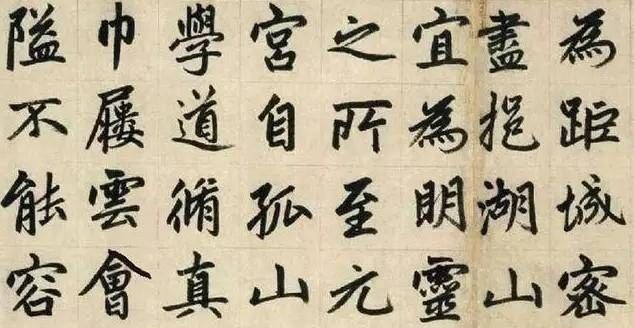 為距城密
盡挹湖山
宜為明靈
之所至元
宮自孤山
學道脩真
巾屨雲會
隘不能容